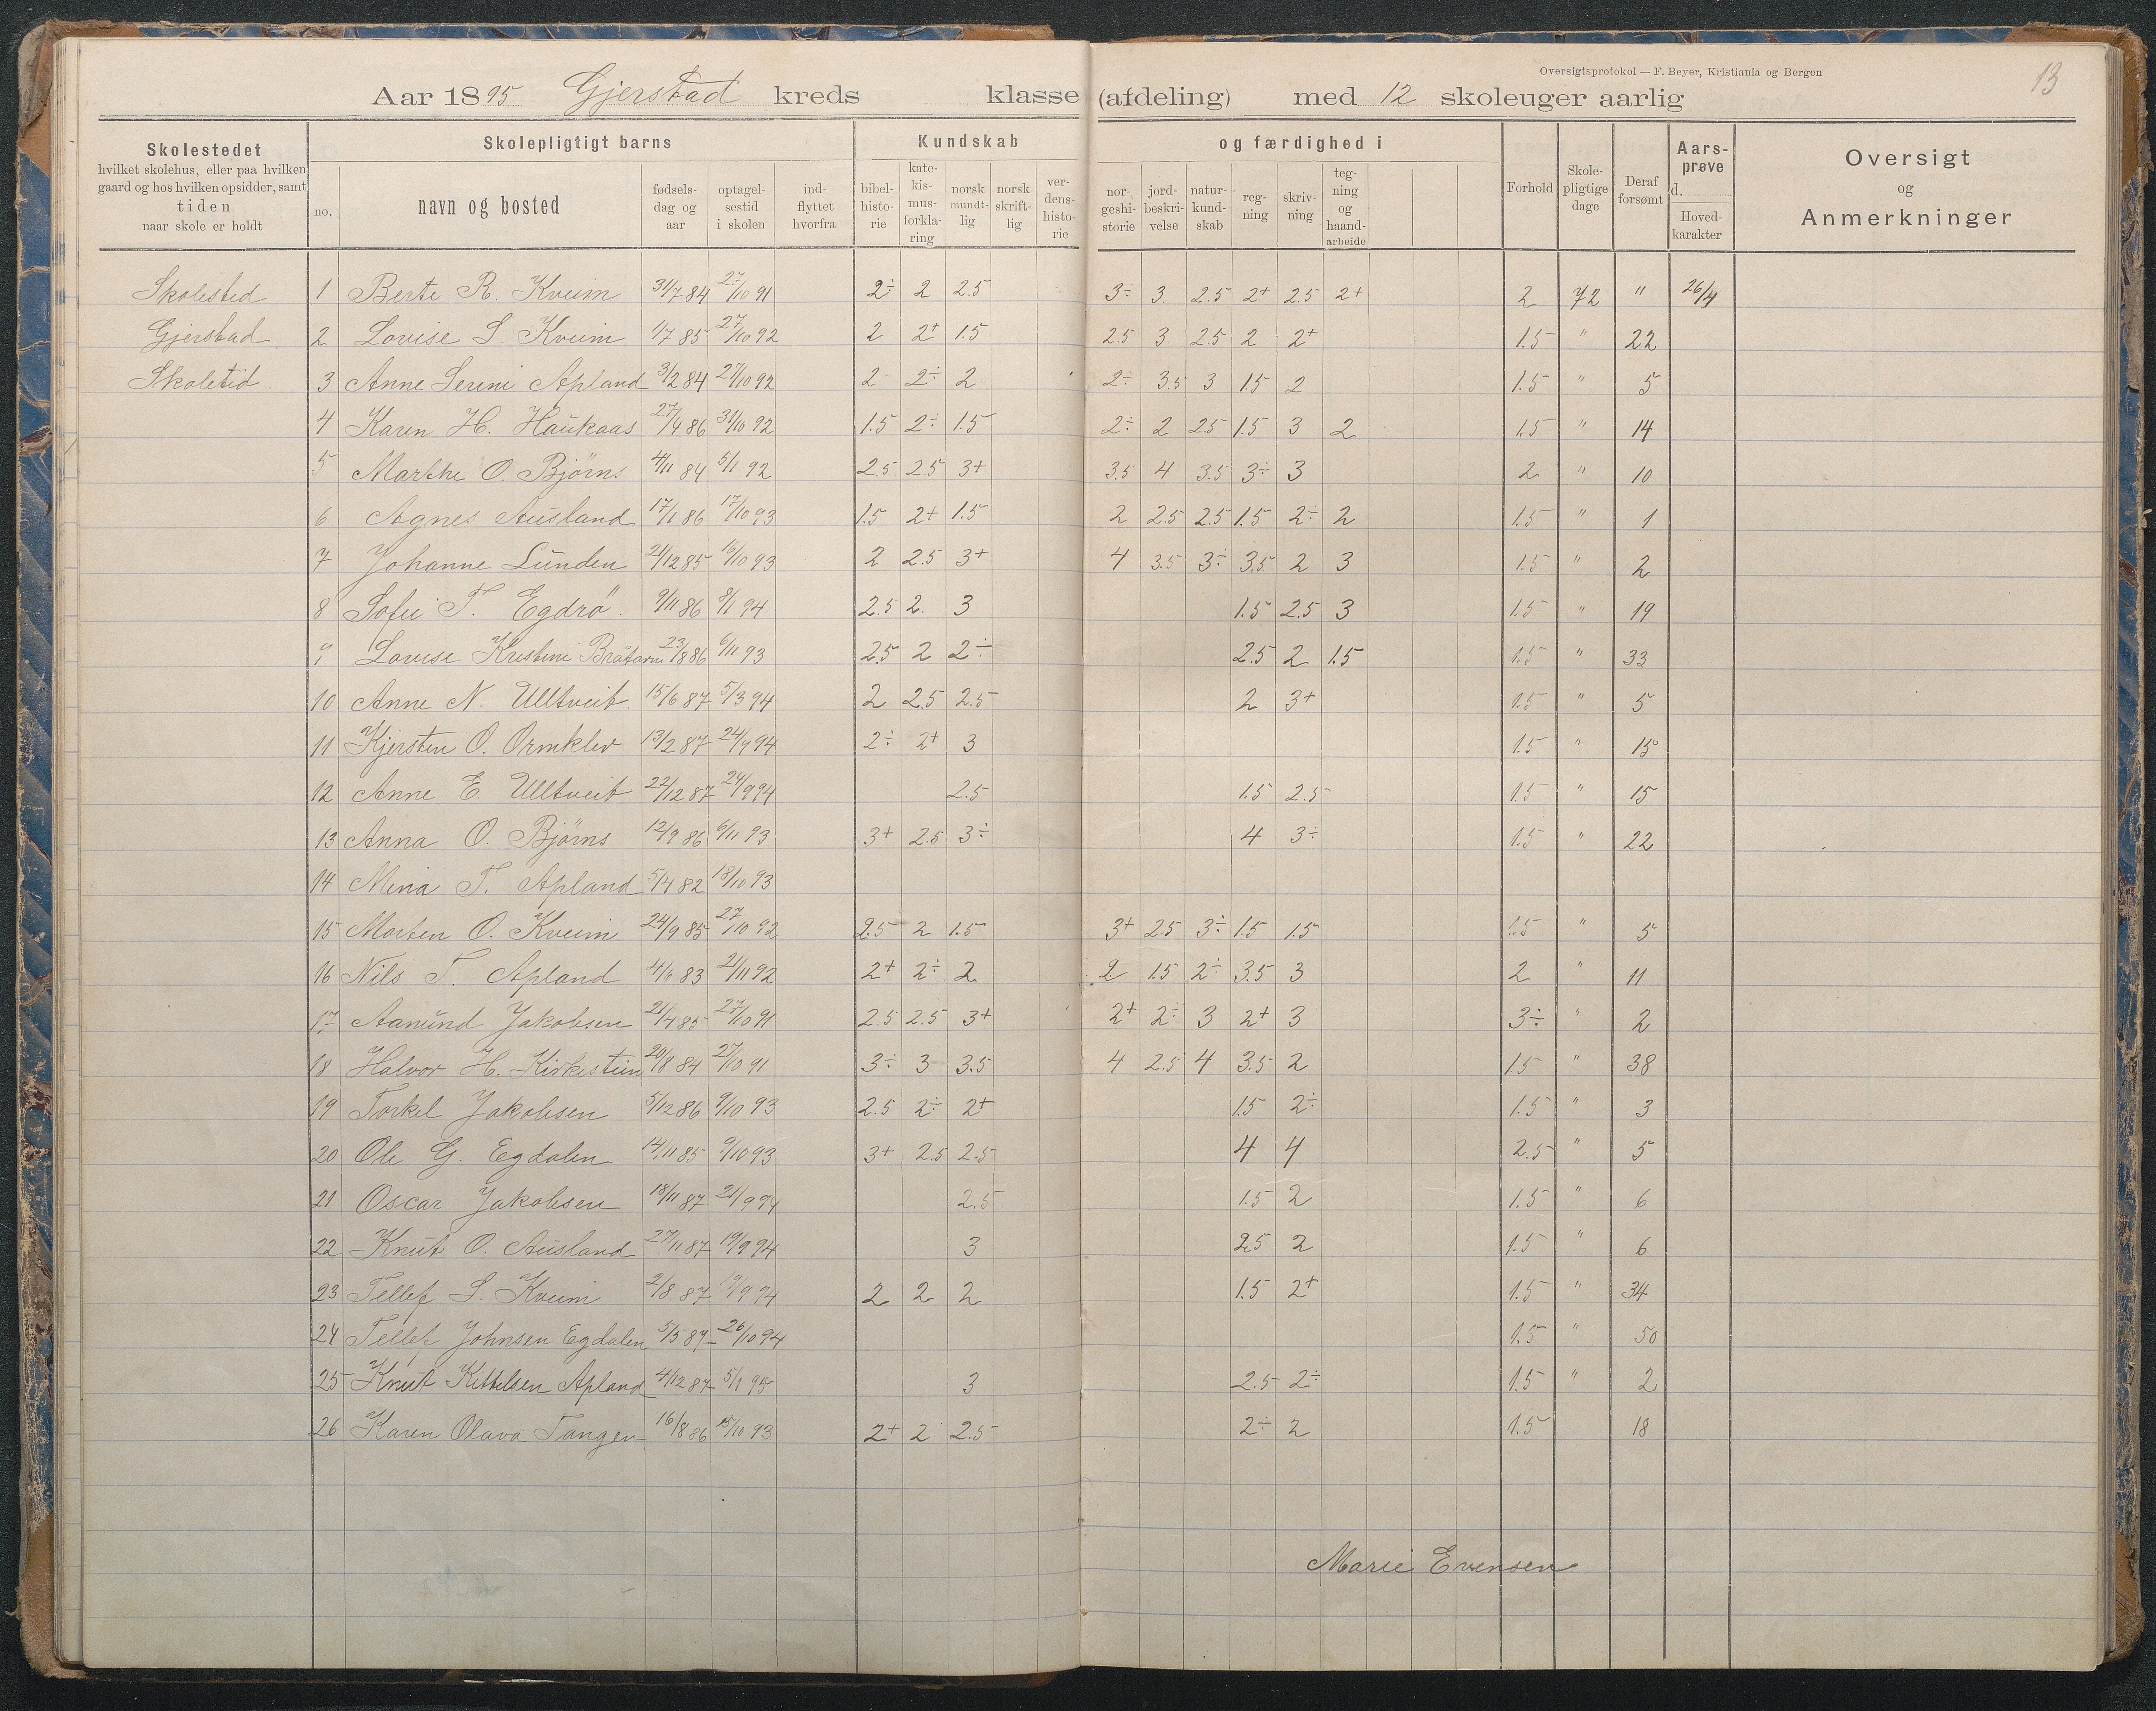 Oversigtsprotokol — F. Beyer, Kristiania og Bergen
13
Aar 1895 Gjerstad kreds klasse (afdeling) med 12 skoleuger aarlig
Skolestedet hvilket skolehus, eller paa hvilken gaard og hos hvilken opsidder, samt tiden naar skole er holdt
Skolepligtigt barns
no. navn og bosted fødselsdag og aar optagelsestid i skolen indflyttet hvorfra
Kundskab og færdighed i
bibelhistorie katekismusforklaring norsk mundtlig norsk skriftlig verdenshistorie norgeshistorie jordbeskrivelse naturkundskab regning skrivning tegning og haandarbeide
Forhold Skolepligtige dage Deraf forsømt Aarsprøve d. Hovedkarakter
Oversigt og Anmerkninger
Skolested 1 Berte R. Kveim 31/7 84 27/10 91 2÷ 2 2.5 3÷ 3 2.5 2+ 2.5 2+ 2 72 " 26/4
Gjerstad 2 Lovise S. Kveim 1/7 85 27/10 92 2 2+ 1.5 2.5 3 2.5 2 2+ 1.5 " 22
Skoletid. 3 Anne Serine Apland 3/2 84 27/10 92 2 2÷ 2 2÷ 3.5 3 1.5 2 1.5 " 5
4 Karen H. Haukaas 27/4 86 31/10 92 1.5 2÷ 1.5 2÷ 2 2.5 1.5 3 2 1.5 " 14
5 Marthe O. Bjørns 4/11 84 5/1 92 2.5 2.5 3+ 3.5 4 3.5 3÷ 3 2 " 10
6 Agnes Ausland 17/1 86 17/10 93 1.5 2+ 1.5 2 2.5 2.5 1.5 2÷ 2 1.5 " 1
7 Johanne Lunden 21/12 85 16/10 93 2 2.5 3+ 4 3.5 3÷ 3.5 2 3 1.5 " 2
8 Sofie T. Egdrö. 9/11 86 8/1 94 2.5 2. 3 1.5 2.5 3 1.5 " 19
9 Lovise Kristine 23/8 86 6/11 93 2.5 2 2÷ 2.5 2 1.5 1.5 " 33
10 Anne N. Ulltveit. 15/6 87 5/3 94 2 2.5 2.5 2 3+ 1.5 " 5
11 Kjersten O. Ormklev 13/2 87 24/9 94 2÷ 2+ 3 1.5 " 15
12 Anne E. Ulltveit 22/12 87 24/9 94 2.5 1.5 2.5 1.5 " 15
13 Anna O. Bjørns 12/9 86 6/11 93 3+ 2.5 3÷ 4 3÷ 1.5 " 22
14 Mina T. Apland 5/4 82 18/10 93
15 Morten O. Kveim 24/9 85 27/10 92 2.5 2 1.5 3+ 2.5 3÷ 1.5 1.5 1.5 " 5
16 Nils T. Apland 4/6 83 2/11 92 2+ 2÷ 2 2 1.5 2÷ 3.5 3 2 " 11
17 Aanund Jakobsen 21/4 85 27/10 91 2.5 2.5 3+ 2+ 2÷ 3 2+ 3 3÷ " 2
18 Halvor H. Kirkestuen 20/8 84 27/10 91 3÷ 3 3.5 4 2.5 4 3.5 2 1.5 " 38
19 Torkel Jakobsen 5/12 86 9/10 93 2.5 2÷ 2+ 1.5 2÷ 1.5 " 3
20 Ole G. Egdalen 14/11 85 9/10 93 3+ 2.5 2.5 4 4 2.5 " 5
21 Oscar Jakobsen 18/11 87 21/9 94 2.5 1.5 2 1.5 " 6
22 Knut O. Ausland 27/11 87 19/9 94 3 2.5 2 1.5 " 6
23 Tellef S. Kveim 2/8 87 19/9 94 2 2 2 1.5 2+ 1.5 " 34
24 Tellef Johnsen Egdalen 5/5 87 26/10 94 1.5 " 50
25 Knut Kittelsen Apland 4/12 87 5/1 95 3 2.5 2÷ 1.5 " 2
26 Karen Olava Tangen 16/8 86 15/10 93 2+ 2 2.5 2÷ 2 1.5 18
Marie Evensen